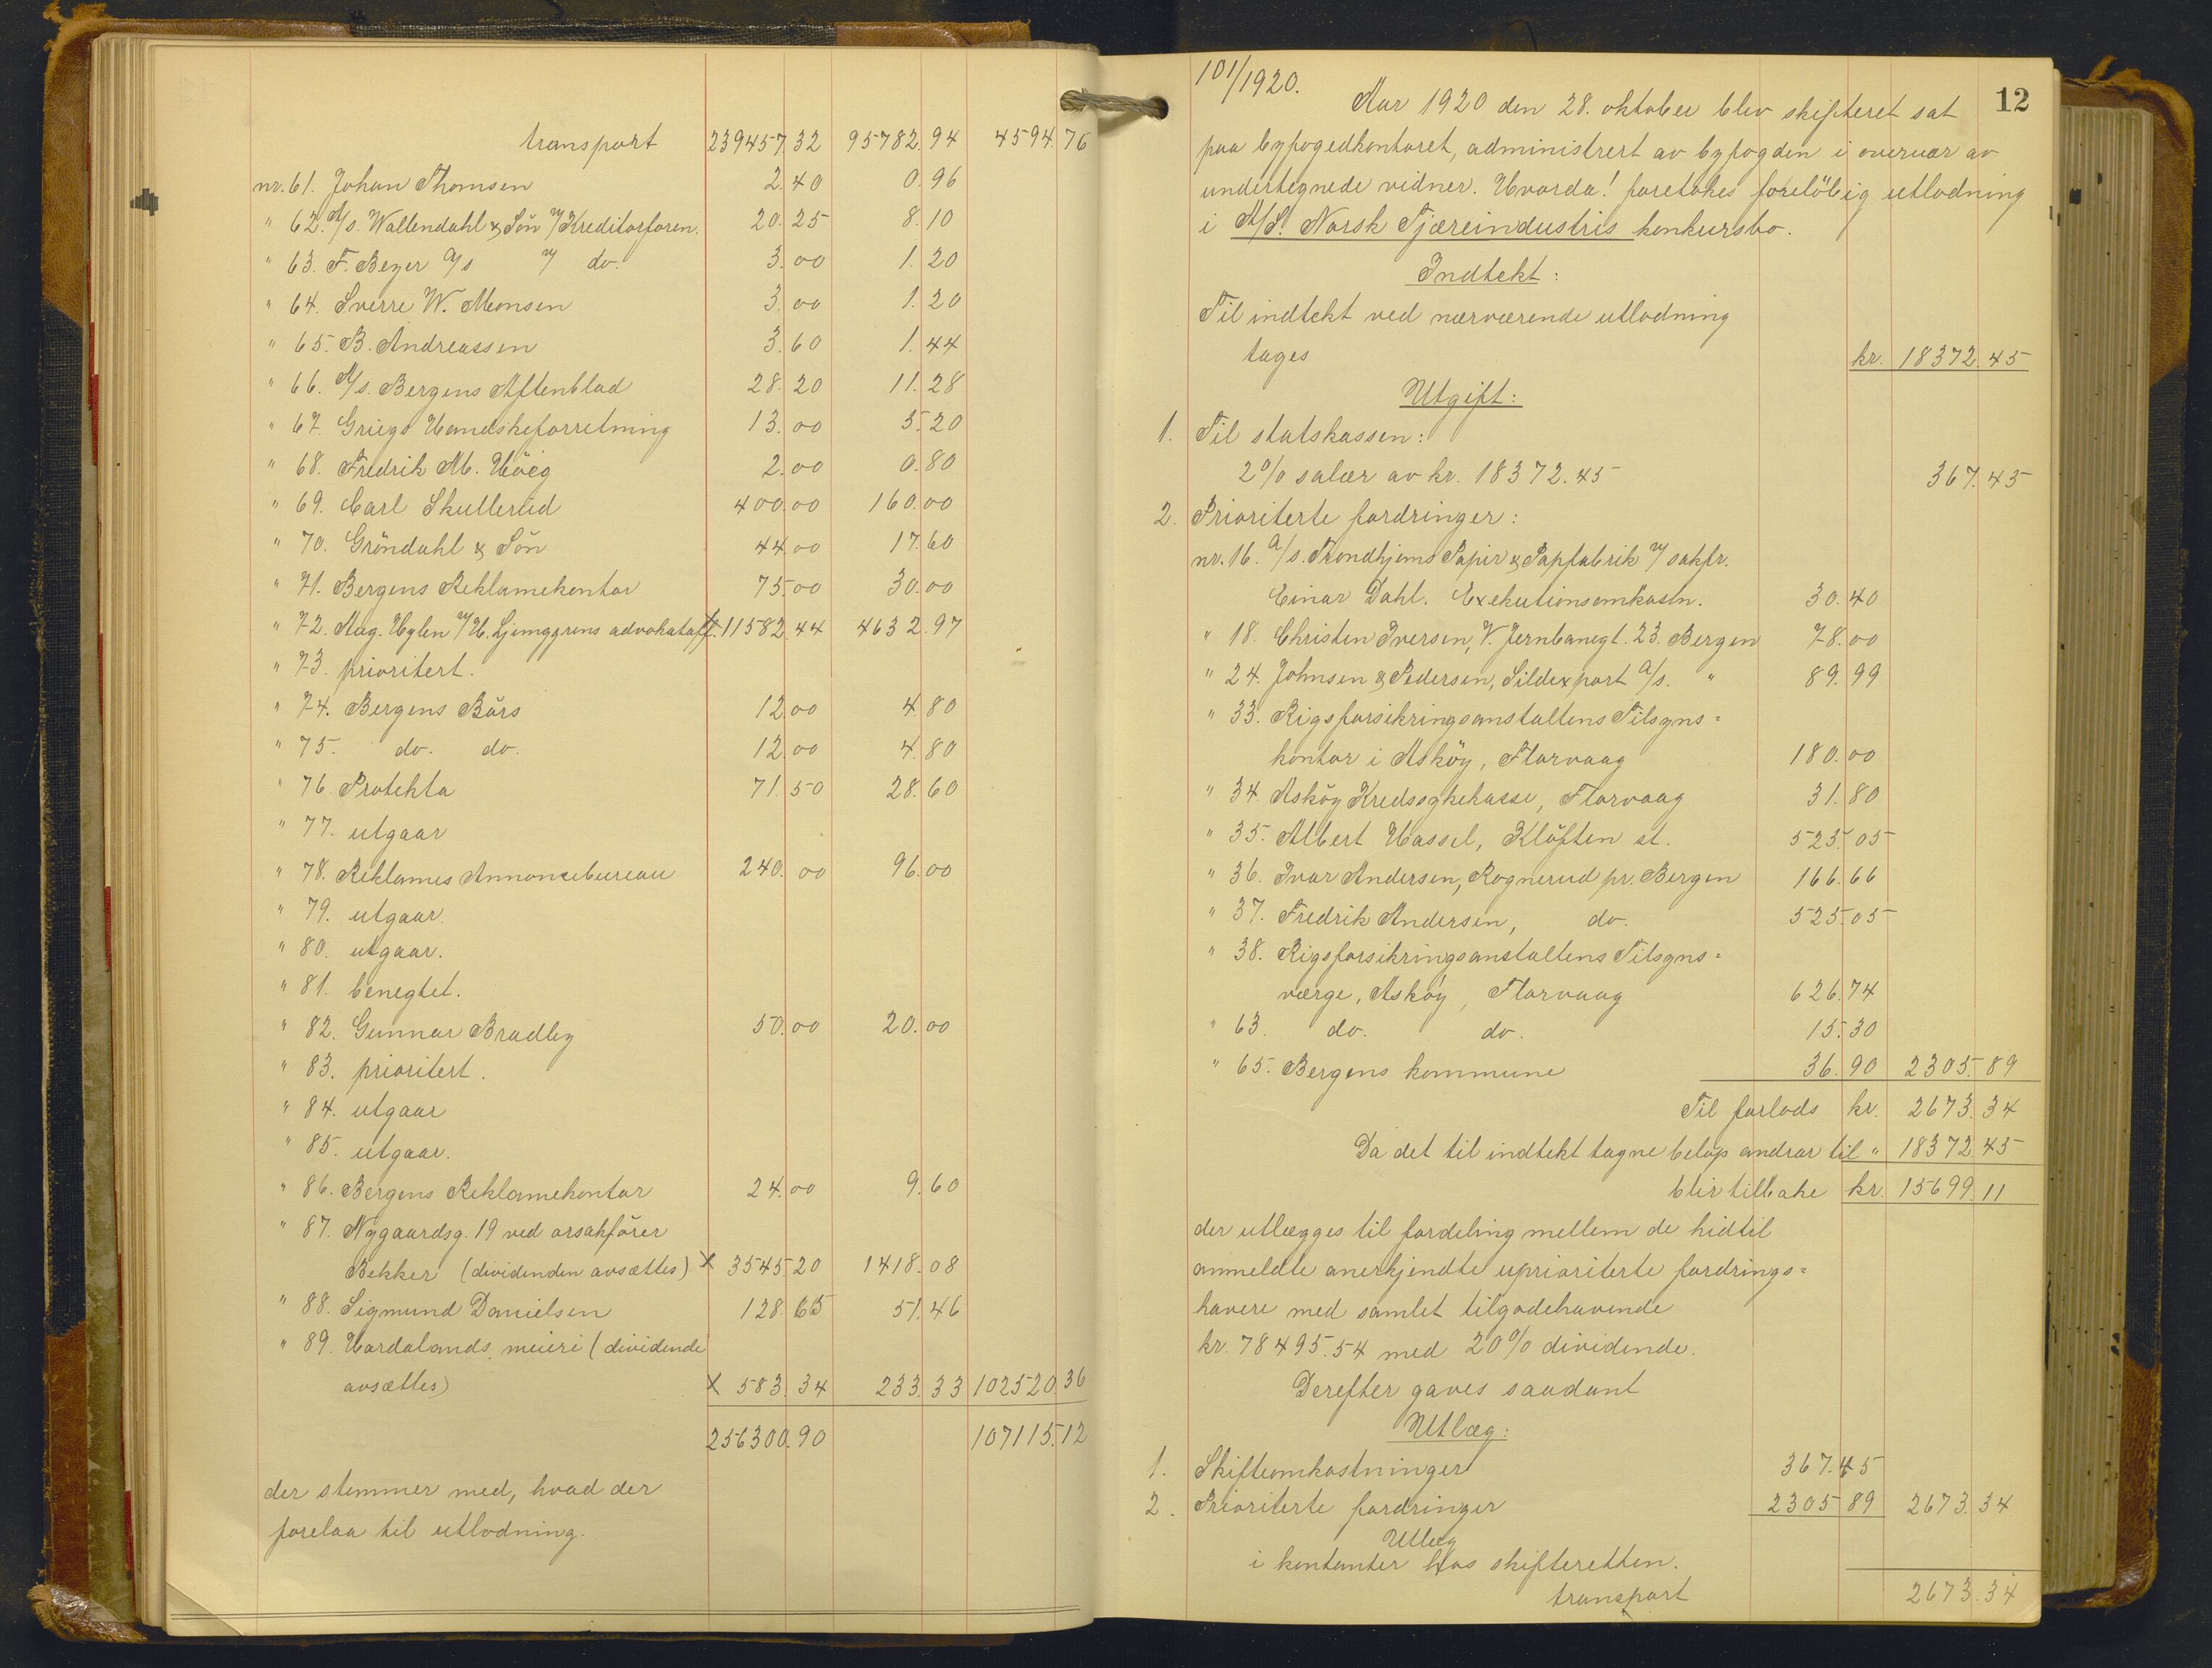 transport 239457.32 95782.94 4594.76
nr. 61. Johan Thomsen 2.40 0.96
" 62. A/s. Wallendahl & Sön v/ Kreditorforen. 20.25 8.10
" 63. F. Beyer A/s v/ do. 3.00 1.20
" 64. Sverre W. Monsen 3.00 1.20
" 65. B. Andreassen 3.60 1.44
" 66. A/s. Bergens Aftenblad 28.20 11.28
" 67. Griegs Handskeforretning 13.00 5.20
" 68. Fredrik M. Höeg 2.00 0.80
" 69. Carl Skullerud 400.00 160.00
" 70. Gröndahl & Sön 44.00 17.60
" 71. Bergens Reklamekontor 75.00 30.00
" 72. Aug. Hylen v/ H. Ljunggrens advokataff. 11582.44 4632.97
" 73. prioritert.
" 74. Bergens Börs 12.00 4.80
" 75. do. do. 12.00 4.80
" 76. Protekta 71.50 28.60
" 77. utgaar
" 78. Reklames Annoncebureau 240.00 96.00
" 79. utgaar.
" 80. utgaar.
" 81. benegtet.
" 82. Gunnar Bradley 50.00 20.00
" 83. prioritert.
" 84. utgaar
" 85. utgaar.
" 86. Bergens Reklamekontor 24.00 9.60
" 87. Nygaardsg. 19 ved orsakförer
Bekker (dividenden avsættes) x 3545.20 1418.08
" 88. Sigmund Danielsen 128.65 51.46
" 89. Hordalands meieri (dividende
avsættes) x 583.34 233.33 102520.36
256300.90 107115.12
der stemmer med, hvad der
forelaa til utlodning.
101/1920.
12
Aar 1920 den 28. oktober blev skifteret sat
paa byfogedkontoret, administrert av byfogden i overvær av
undertegnede vidner. Hvorda! foretokes foreløbig utlodning
i A/S. Norsk Tjæreindustris konkursbo.
Indtekt:
Til indtekt ved nærværende utlodning
tages kr. 18372.45
Utgift:
1. Til statskassen:
2% salær av kr. 18372.45 367.45
2. Prioriterte fordringer:
nr. 16. A/s. Trondhjems Papir & Papfabrik v/ sakfr.
Einar Dahl. Exekutionsomkostn. 30.40
" 18. Christen Iversen, V. Jernbanegt. 23. Bergen 78.00
" 24. Johnsen & Pedersen, Sildexport A/s. " 89.99
" 33. Rigsforsikringsanstaltens Tilsyns=
kontor i Asköy, Florvaag 180.00
" 34. Asköy Kredssykekasse, Florvaag 31.80
" 35. Albert Hassel, Klöften st. 525.05
" 36. Ivar Andersen, Rognerud pr. Bergen 166.66
" 37. Fredrik Andersen, do. 525.05
" 38. Rigsforsikringsanstaltens Tilsyns=
værge, Asköy, Florvaag 626.74
" 63. do. do. 15.30
" 65. Bergens kommune 36.90 2305.89
Til forlods kr. 2673.34
Da det til indtekt tagne beløp andrar til " 18372.45
blir tilbake kr. 15699.11
der utlægges til fordeling mellem de hidtil
anmeldte anerkjendte uprioriterte fordrings=
havere med samlet tilgodehavende
kr. 78495.54 med 20% dividende.
Derefter gaves saadant
Utlæg:
1. Skifteomkostninger 367.45
2. Prioriterte fordringer 2305.89 2673.34
Utlæg
i kontanter hos skifteretten.
transport 2673.34